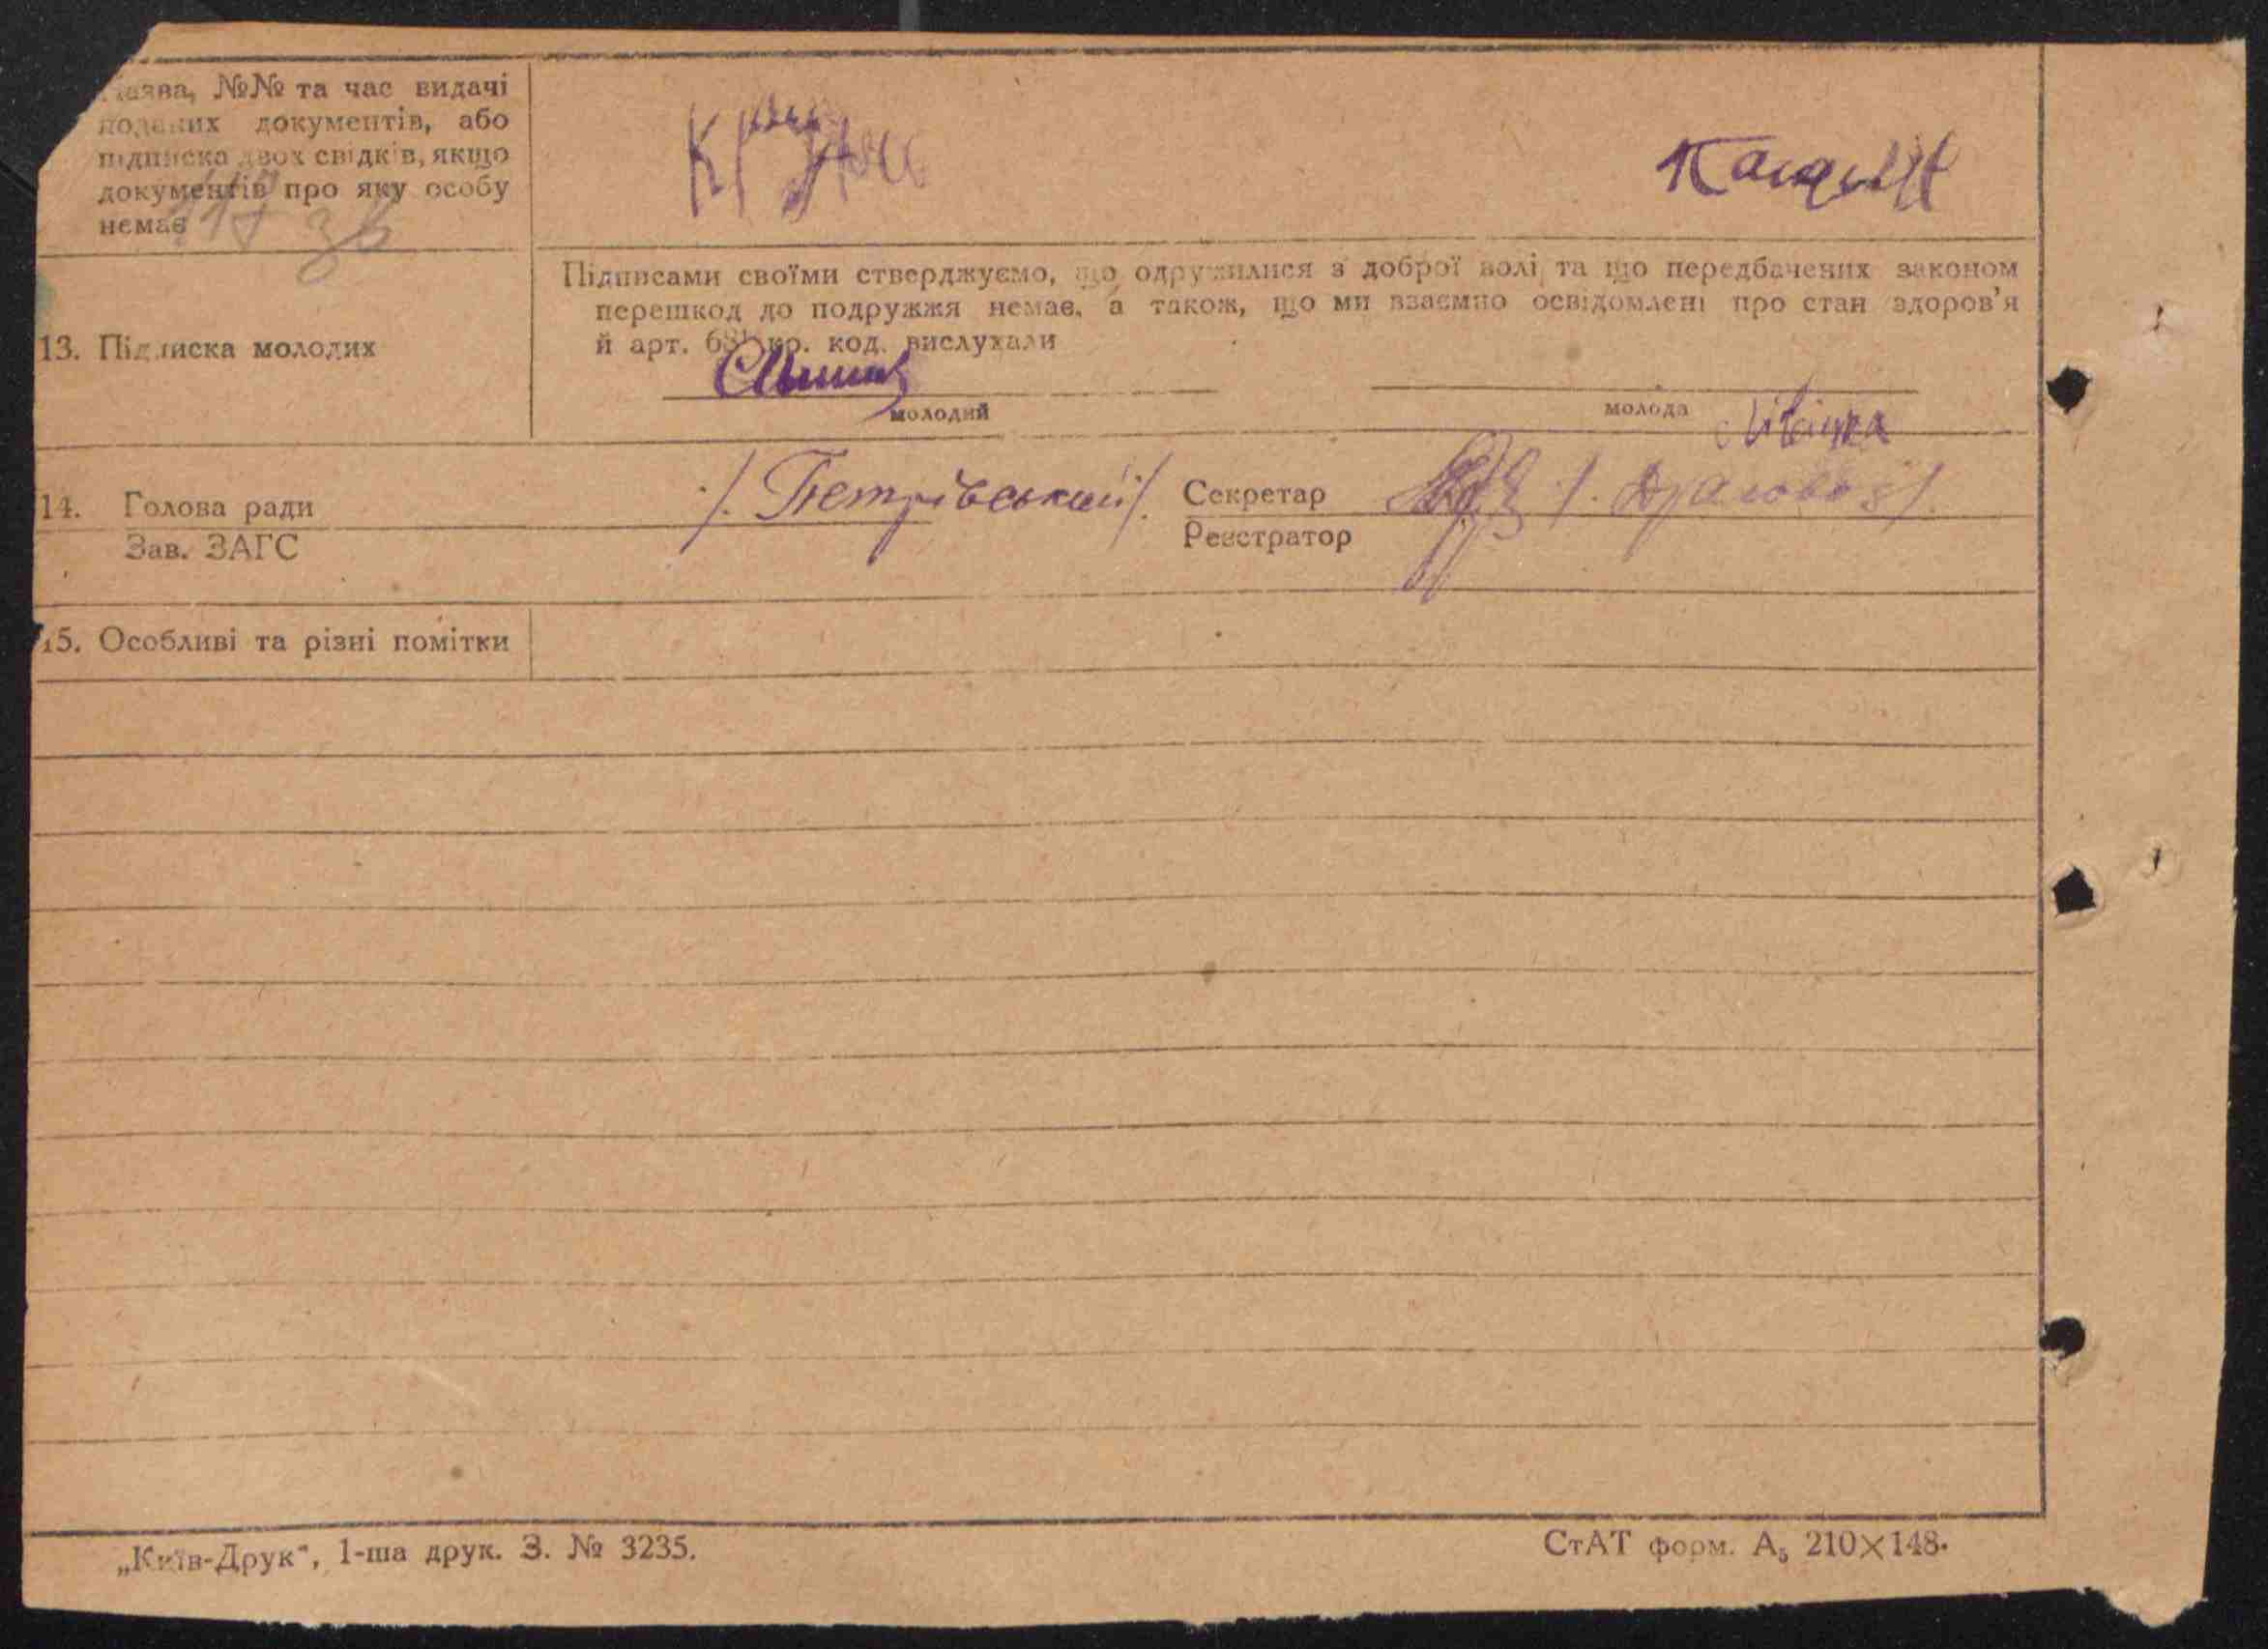 Назва, №№ та час видачі
поданих документів, або
підписка двох свідків, якщо
документів про яку особу
немає
Підписами своїми стверджуємо, що одружилися з доброї волі та що передбачених законом
перешкод до подружжя немає, а також, що ми взаємно освідомлені про стан здоров'я
й арт. кр. код. вислухали
13. Підписка молодих
молодий
молода
14. Голова ради /. Петрівський /. Секретар
Зав. ЗАГС Реєстратор
15. Особливі та різні помітки
„Київ-Друк“, 1-ша друк. З. № 3235.
СтАТ форм. А₅ 210×148.